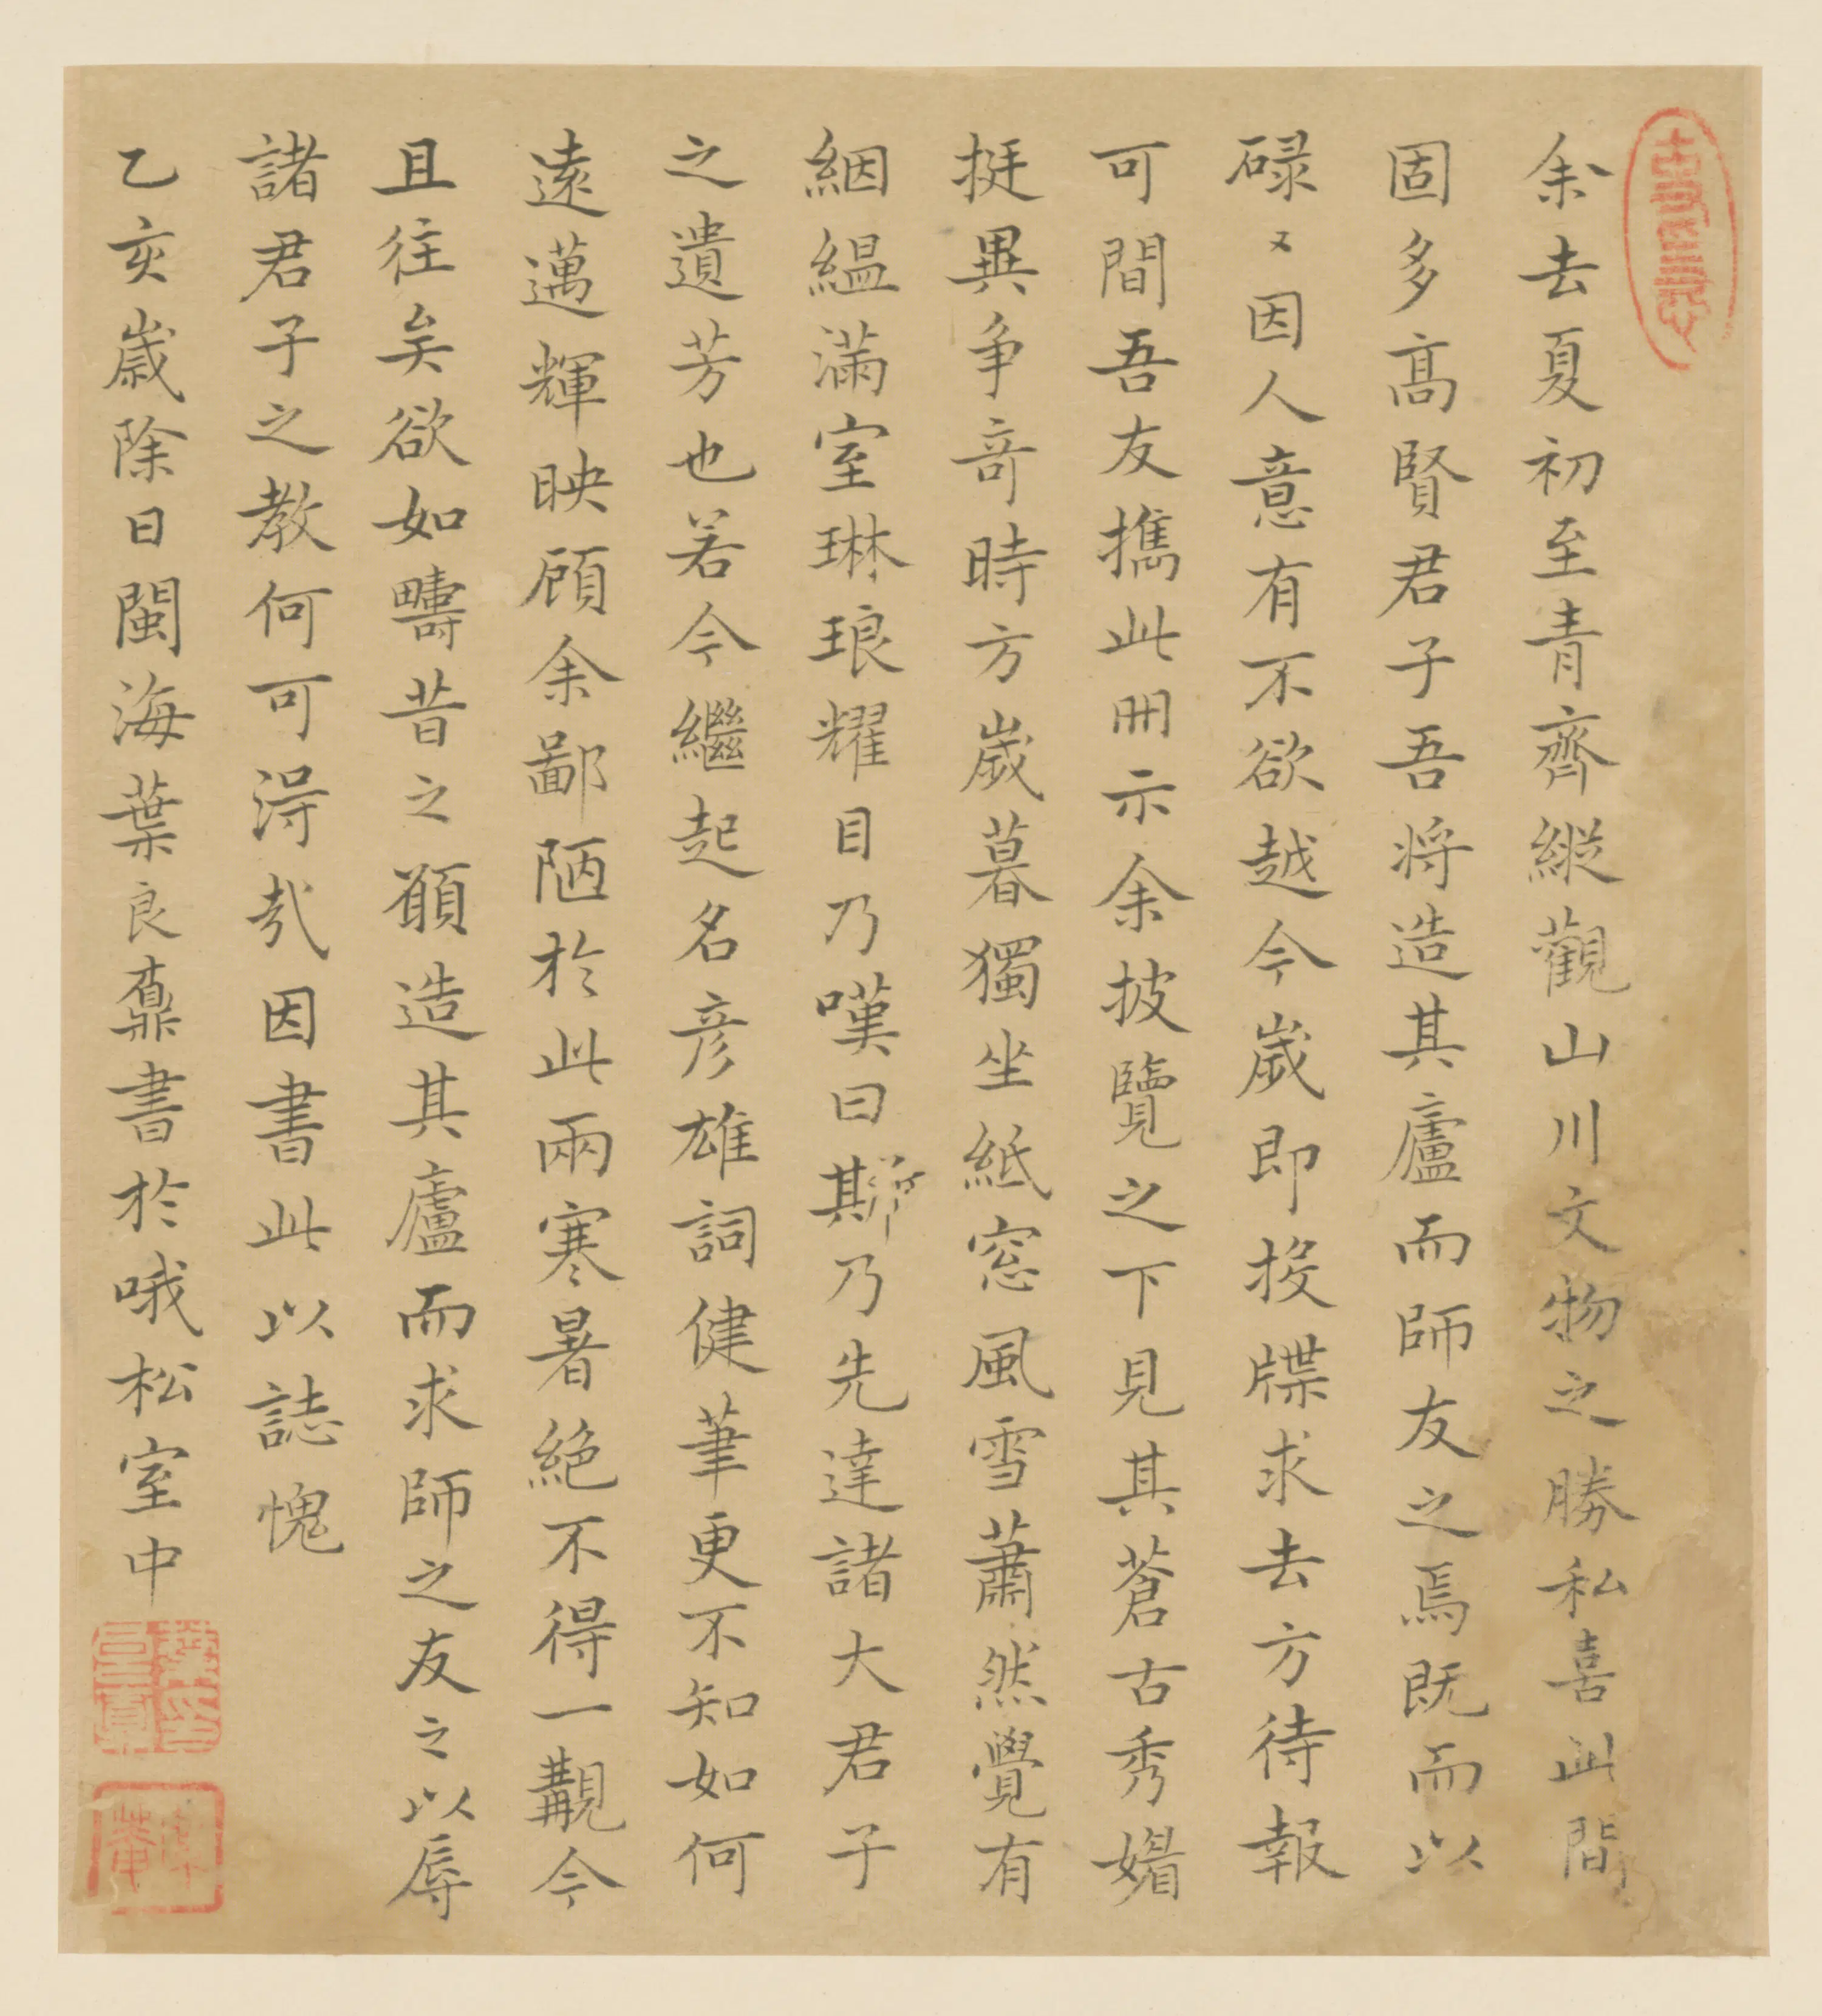 余去夏初至青齊縱觀山川文物之勝私喜此間
固多高賢君子吾将造其廬而師友之焉既而以
碌〻因人意有不欲越今歲即投牒求去方待報
可間吾友攜此冊示余披覽之下見其蒼古秀媚
挺異争奇時方歲暮獨坐紙窓風雪蕭然覺有
絪縕滿室琳琅耀目乃嘆曰斯乃先達諸大君子
之遺芳也若今繼起名彦雄詞健筆更不知如何
遠邁輝映顧余鄙陋於此兩寒暑絶不得一覯今
且往矣欲如疇昔之願造其廬而求師之友之以辱
諸君子之教何可淂哉因書此以誌愧
乙亥歲除日閩海葉良鼒書於哦松室中